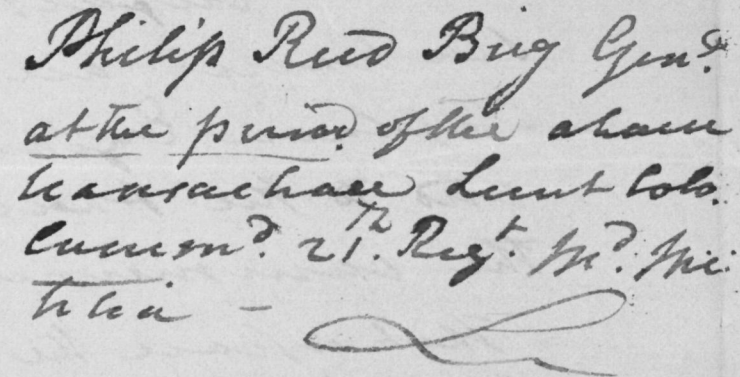 Philip Reed Brig Gen.d
at the period of the above
transactions Lieut Colo.
Comm.d 21.th Reg.t M.d Mi-
litia -